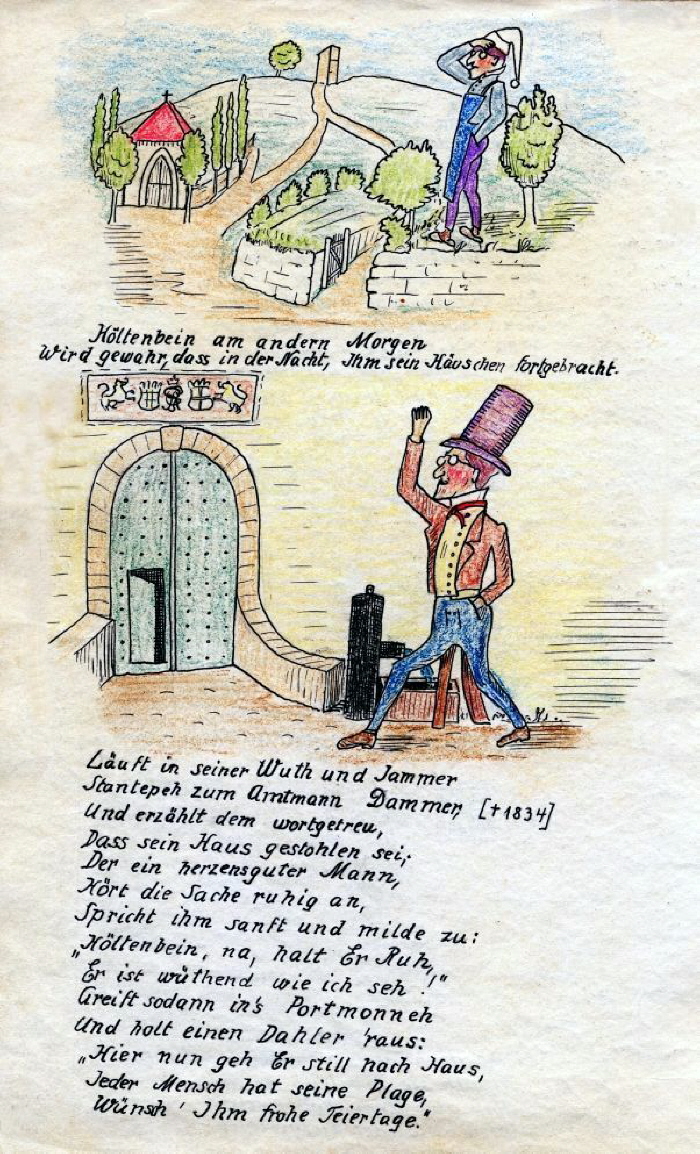 Költenbein am andern Morgen
Wird gewahr, dass in der Nacht, Ihm sein Häuschen fortgebracht.
Läuft in seiner Wuth und Jammer
Stantepeh zum Amtmann Dammer, [†1834]
Und erzählt dem wortgetreu,
Dass sein Haus gestohlen sei;
Der ein herzensguter Mann,
Hört die Sache ruhig an,
Spricht ihm sanft und milde zu:
„Költenbein, na, halt Er Ruh,
Er ist wüthend wie ich seh!"
Greift sodann in's Portmonneh
Und holt einen Dahler 'raus:
„Hier nun geh Er still nach Haus,
Jeder Mensch hat seine Plage,
Wünsch' Ihm frohe Feiertage."